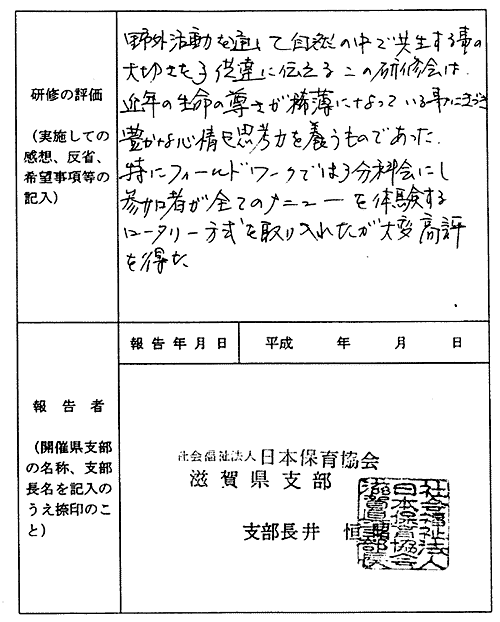 研修の評価
（実施しての
感想、反省、
希望事項等の
記入）
野外活動を通して自然の中で共生する事の
大切さを子供達に伝えるこの研修会は、
近年の生命の尊さが稀薄になっている事に
豊かな心情と思考力を養うものであった。
特にフィールドワークでは3分科会にし
参加者が全てのメニューを体験する
ロータリー方式を取り入れたが大変高評
を得た
報告年月日
平成 年 月 日
報告者
（開催県支部
の名称、支部
長名を記入の
うえ捺印のこ
と）
社会福祉法人日本保育協会
滋賀県支部
支部長井 恒
社会福祉法人
日本保育協会
滋賀県支部長